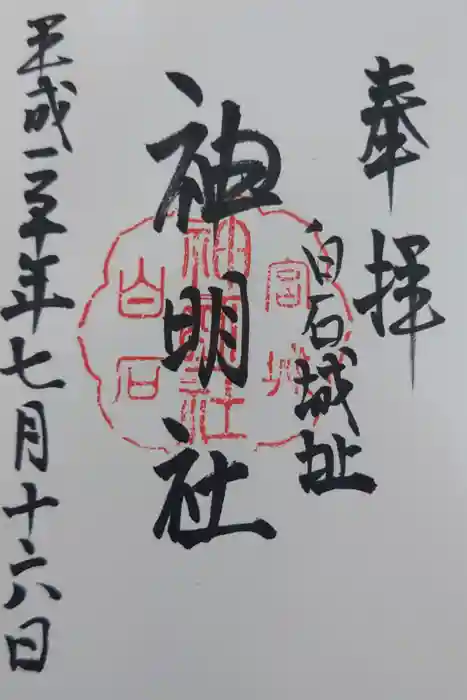 奉拝
白石城址
神明社
平成三十年七月十六日
宮城
白石